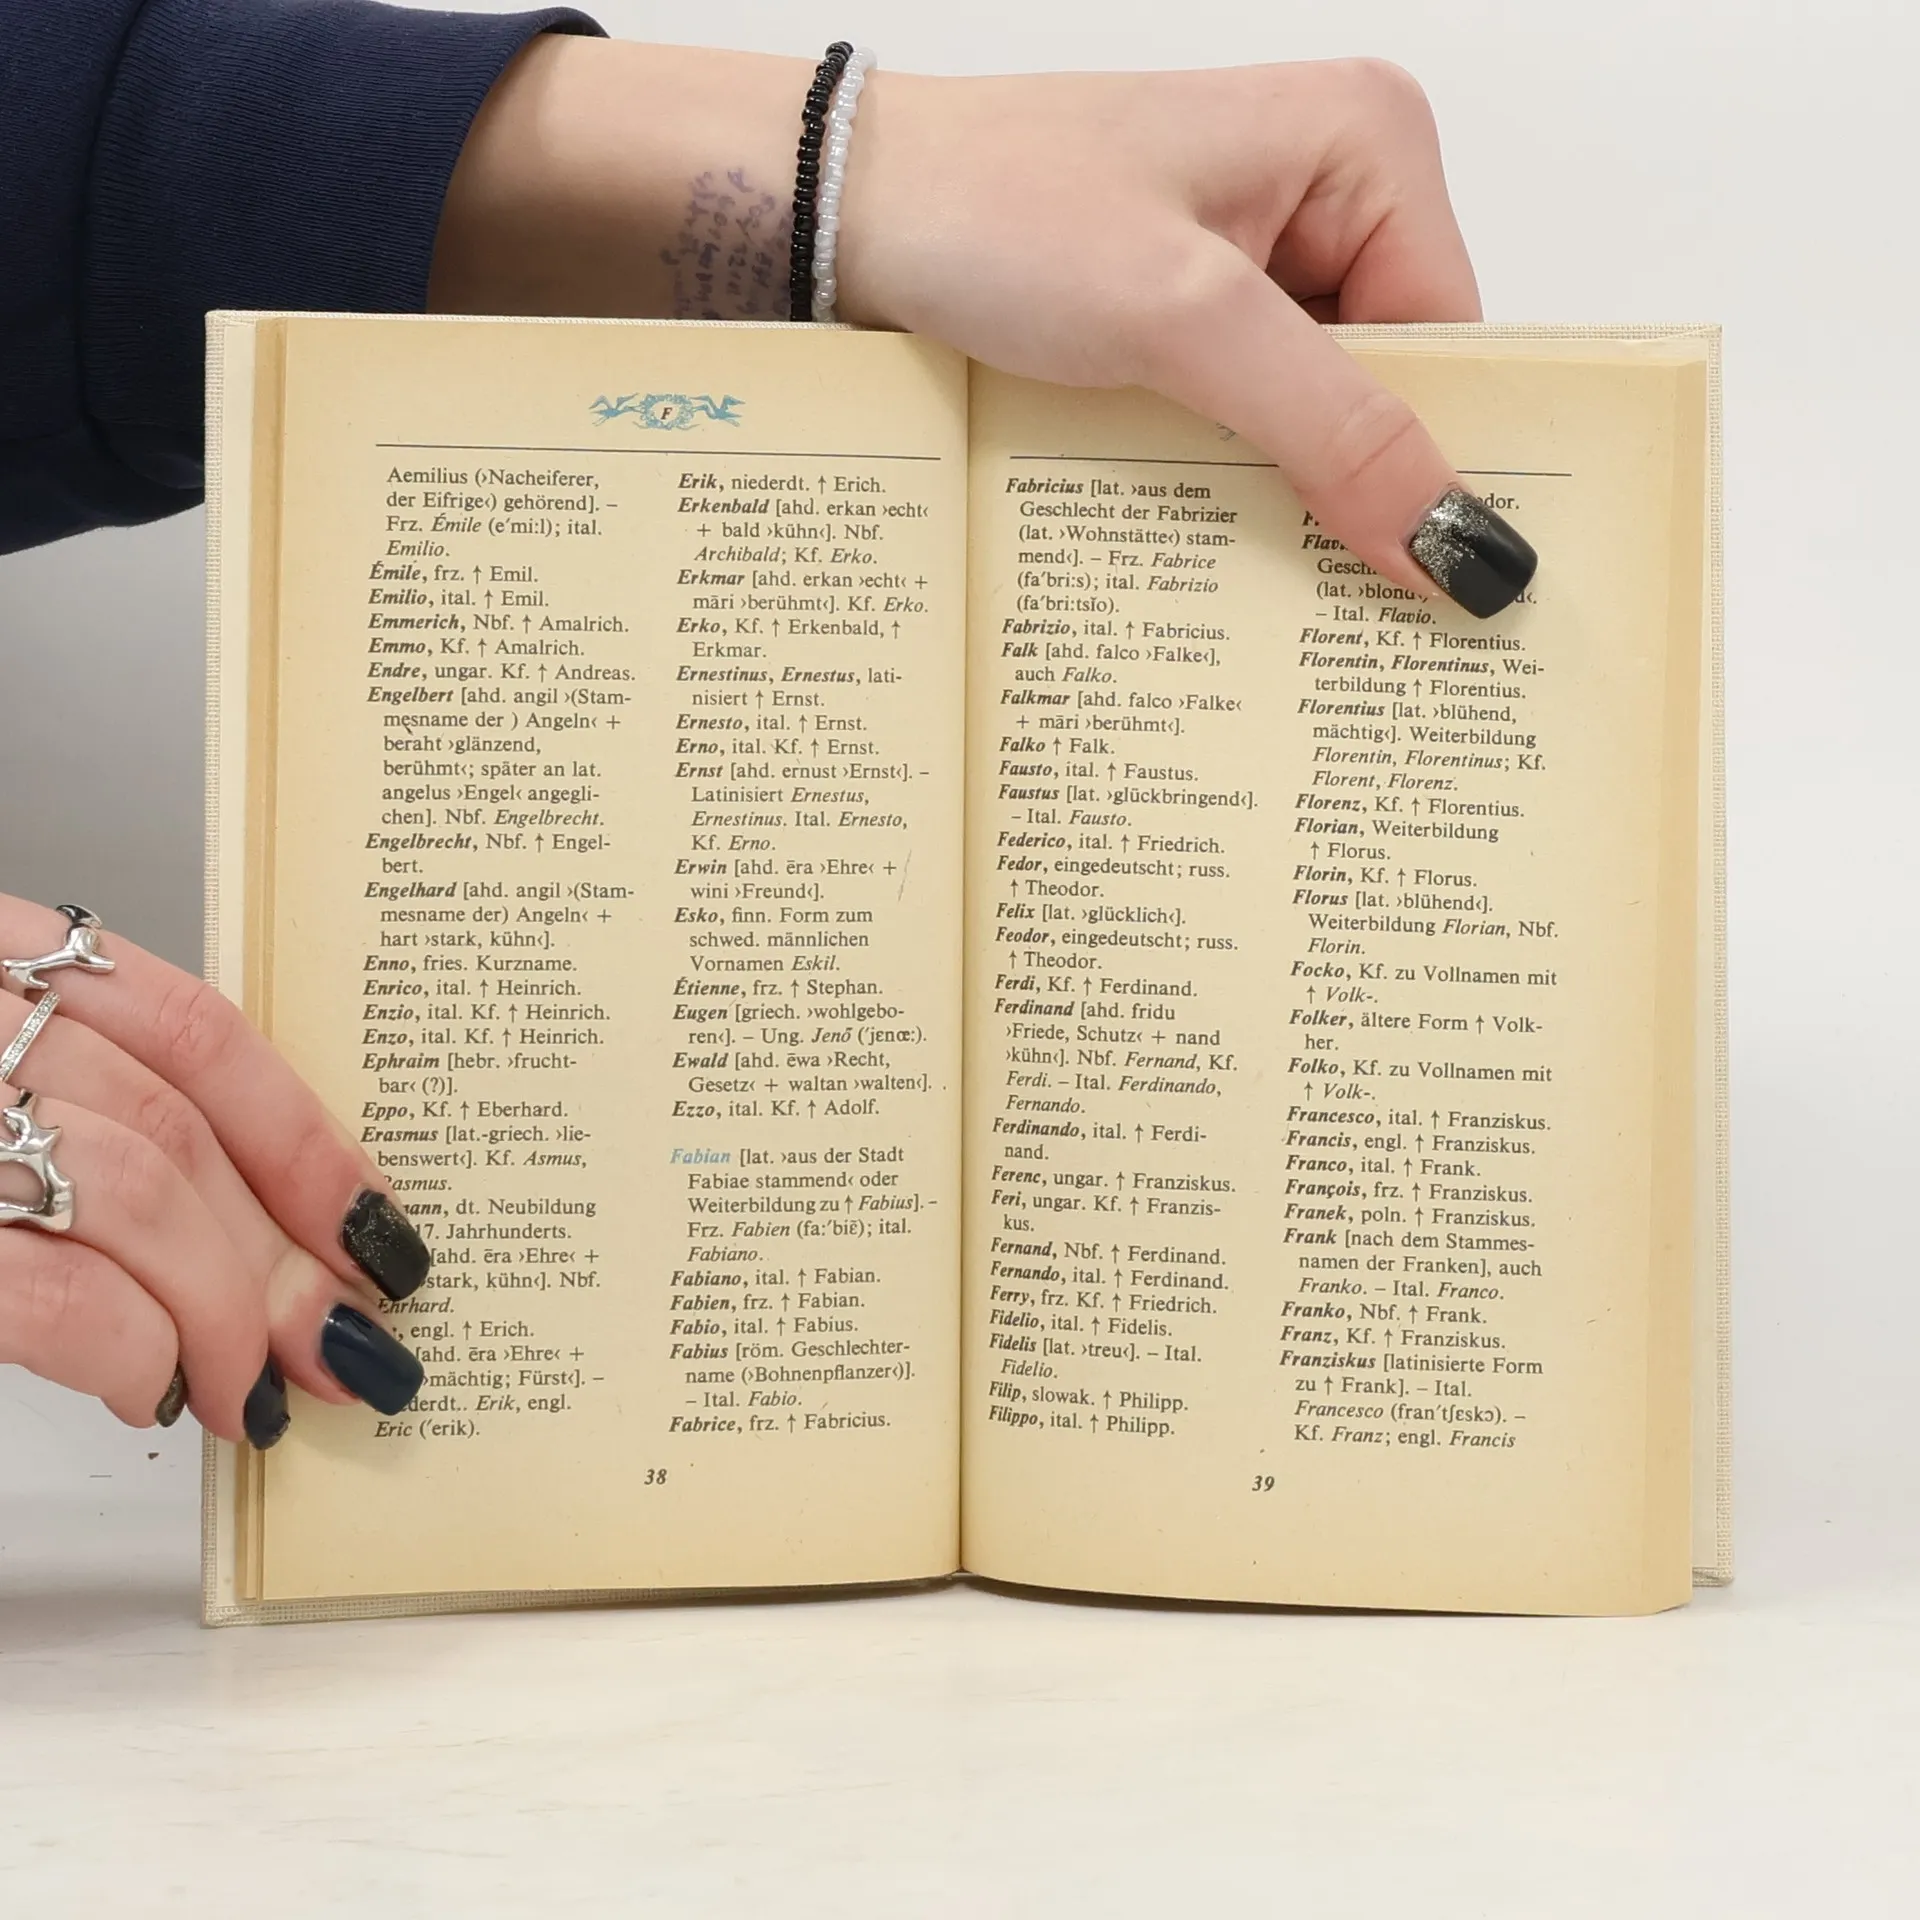 F
Aemilius (›Nacheiferer,
der Eifrige‹) gehörend]. –
Frz. Émile (e'mi:l); ital.
Emilio.
Émile, frz. ↑ Emil.
Emilio, ital. ↑ Emil.
Emmerich, Nbf. ↑ Amalrich.
Emmo, Kf. ↑ Amalrich.
Endre, ungar. Kf. ↑ Andreas.
Engelbert [ahd. angil ›(Stam-
mesname der ) Angeln‹ +
beraht ›glänzend,
berühmt‹; später an lat.
angelus ›Engel‹ angegli-
chen]. Nbf. Engelbrecht.
Engelbrecht, Nbf. ↑ Engel-
bert.
Engelhard [ahd. angil ›(Stam-
mesname der) Angeln‹ +
hart ›stark, kühn‹].
Enno, fries. Kurzname.
Enrico, ital. ↑ Heinrich.
Enzio, ital. Kf. ↑ Heinrich.
Enzo, ital. Kf. ↑ Heinrich.
Ephraim [hebr. ›frucht-
bar‹ (?)].
Eppo, Kf. ↑ Eberhard.
Erasmus [lat.-griech. ›lie-
benswert‹]. Kf. Asmus,
Rasmus.
dt. Neubildung
17. Jahrhunderts.
[ahd. ēra ›Ehre‹ +
›stark, kühn‹]. Nbf.
Ehrhard.
engl. ↑ Erich.
[ahd. ēra ›Ehre‹ +
›mächtig; Fürst‹]. –
Erik, engl.
Eric ('erik).
Erik, niederdt. ↑ Erich.
Erkenbald [ahd. erkan ›echt‹
+ bald ›kühn‹]. Nbf.
Archibald; Kf. Erko.
Erkmar [ahd. erkan ›echt‹ +
māri ›berühmt‹]. Kf. Erko.
Erko, Kf. ↑ Erkenbald, ↑
Erkmar.
Ernestinus, Ernestus, lati-
nisiert ↑ Ernst.
Ernesto, ital. ↑ Ernst.
Erno, ital. Kf. ↑ Ernst.
Ernst [ahd. ernust ›Ernst‹]. –
Latinisiert Ernestus,
Ernestinus. Ital. Ernesto,
Kf. Erno.
Erwin [ahd. ēra ›Ehre‹ +
wini ›Freund‹].
Esko, finn. Form zum
schwed. männlichen
Vornamen Eskil.
Étienne, frz. ↑ Stephan.
Eugen [griech. ›wohlgebo-
ren‹]. – Ung. Jenő ('jɛnœ:).
Ewald [ahd. ēwa ›Recht,
Gesetz‹ + waltan ›walten‹].
Ezzo, ital. Kf. ↑ Adolf.
Fabian [lat. ›aus der Stadt
Fabiae stammend‹ oder
Weiterbildung zu ↑ Fabius]. –
Frz. Fabien (fa:'biɛ̃); ital.
Fabiano.
Fabiano, ital. ↑ Fabian.
Fabien, frz. ↑ Fabian.
Fabio, ital. ↑ Fabius.
Fabius [röm. Geschlechter-
name (›Bohnenpflanzer‹)].
– Ital. Fabio.
Fabrice, frz. ↑ Fabricius.
38
Fabricius [lat. ›aus dem
Geschlecht der Fabrizier
(lat. ›Wohnstätte‹) stam-
mend‹]. – Frz. Fabrice
(fa'bri:s); ital. Fabrizio
(fa'bri:tsĭo).
Fabrizio, ital. ↑ Fabricius.
Falk [ahd. falco ›Falke‹],
auch Falko.
Falkmar [ahd. falco ›Falke‹
+ māri ›berühmt‹].
Falko ↑ Falk.
Fausto, ital. ↑ Faustus.
Faustus [lat. ›glückbringend‹].
– Ital. Fausto.
Federico, ital. ↑ Friedrich.
Fedor, eingedeutscht; russ.
↑ Theodor.
Felix [lat. ›glücklich‹].
Feodor, eingedeutscht; russ.
↑ Theodor.
Ferdi, Kf. ↑ Ferdinand.
Ferdinand [ahd. fridu
›Friede, Schutz‹ + nand
›kühn‹]. Nbf. Fernand, Kf.
Ferdi. – Ital. Ferdinando,
Fernando.
Ferdinando, ital. ↑ Ferdi-
nand.
Ferenc, ungar. ↑ Franziskus.
Feri, ungar. Kf. ↑ Franzis-
kus.
Fernand, Nbf. ↑ Ferdinand.
Fernando, ital. ↑ Ferdinand.
Ferry, frz. Kf. ↑ Friedrich.
Fidelio, ital. ↑ Fidelis.
Fidelis [lat. ›treu‹]. – Ital.
Fidelio.
Filip, slowak. ↑ Philipp.
Filippo, ital. ↑ Philipp.
(lat. ›blond‹)
– Ital. Flavio.
Florent, Kf. ↑ Florentius.
Florentin, Florentinus, Wei-
terbildung ↑ Florentius.
Florentius [lat. ›blühend,
mächtig‹]. Weiterbildung
Florentin, Florentinus; Kf.
Florent, Florenz.
Florenz, Kf. ↑ Florentius.
Florian, Weiterbildung
↑ Florus.
Florin, Kf. ↑ Florus.
Florus [lat. ›blühend‹].
Weiterbildung Florian, Nbf.
Florin.
Focko, Kf. zu Vollnamen mit
↑ Volk-.
Folker, ältere Form ↑ Volk-
her.
Folko, Kf. zu Vollnamen mit
↑ Volk-.
Francesco, ital. ↑ Franziskus.
Francis, engl. ↑ Franziskus.
Franco, ital. ↑ Frank.
François, frz. ↑ Franziskus.
Franek, poln. ↑ Franziskus.
Frank [nach dem Stammes-
namen der Franken], auch
Franko. – Ital. Franco.
Franko, Nbf. ↑ Frank.
Franz, Kf. ↑ Franziskus.
Franziskus [latinisierte Form
zu ↑ Frank]. – Ital.
Francesco (fran'tʃɛskɔ). –
Kf. Franz; engl. Francis
39